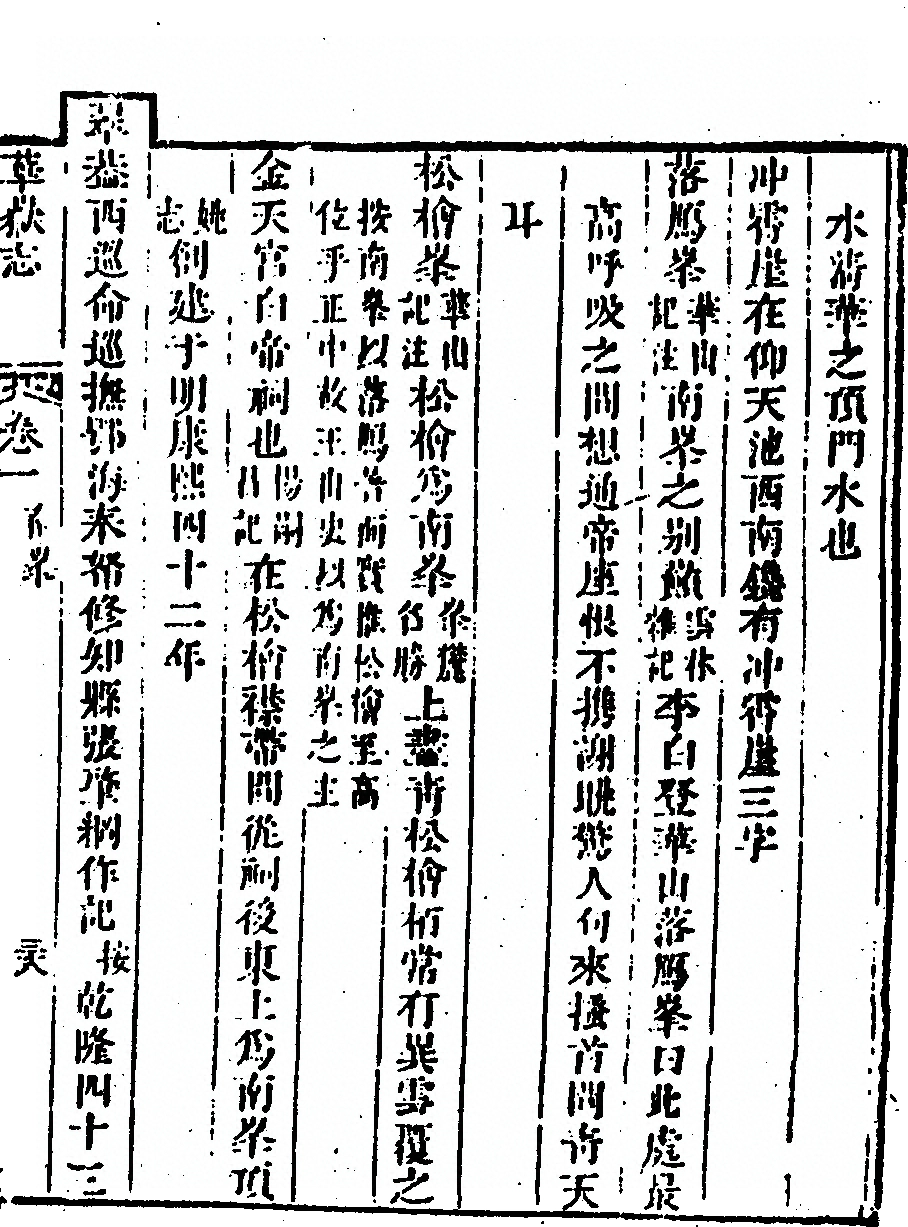 水淸華之頂門水也
冲霄崖在仰天池西南鐫有冲霄崖三字
落鴈峯華山記注南峯之别巘雲仙雜記李白登華山落鴈峯曰此處最
高呼吸之間想通帝座恨不携謝眺驚人句來搔首問靑天
耳
松檜峯華山記注松檜爲南峯峯巉名勝上聳靑松檜栢常有異雲覆之
按南峯以落鴈首而實惟松檜至高
位乎正中故王山史以爲南峯之主
金天宮白帝祠也楊嗣昌記在松檜襟帶間從祠後東上爲南峯頂
姚志創建于明康熙四十二年
翠葢西巡命巡撫鄂海來督修知縣張肇綱作記 按乾隆四十三
華嶽志 卷一 名峯